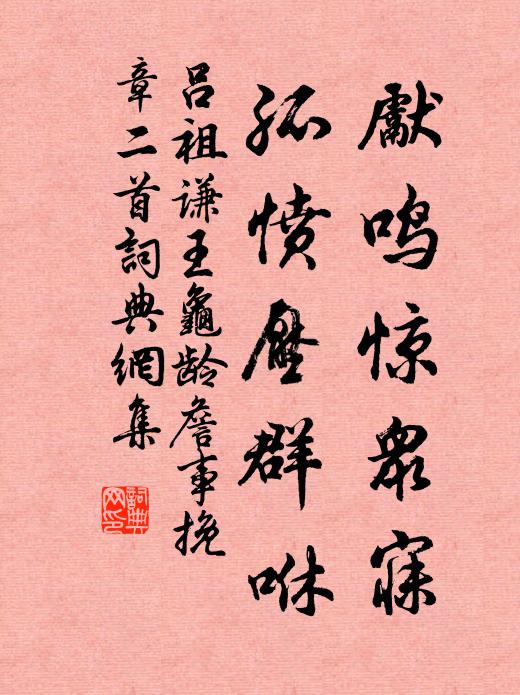 獻鸣惊眾寐
孤愤壓群咻
吕祖谦王龜龄詹事挽
章二首詞典網集
詞典
网印